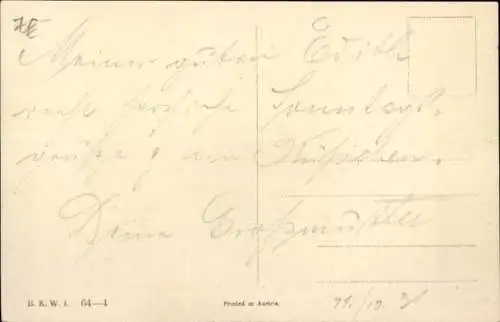 Meiner guten Edith
recht herzliche Sonntags-
grüße & ein Küsschen.
Deine Großmutter
B. K. W. I. 64—4
Printed in Austria.